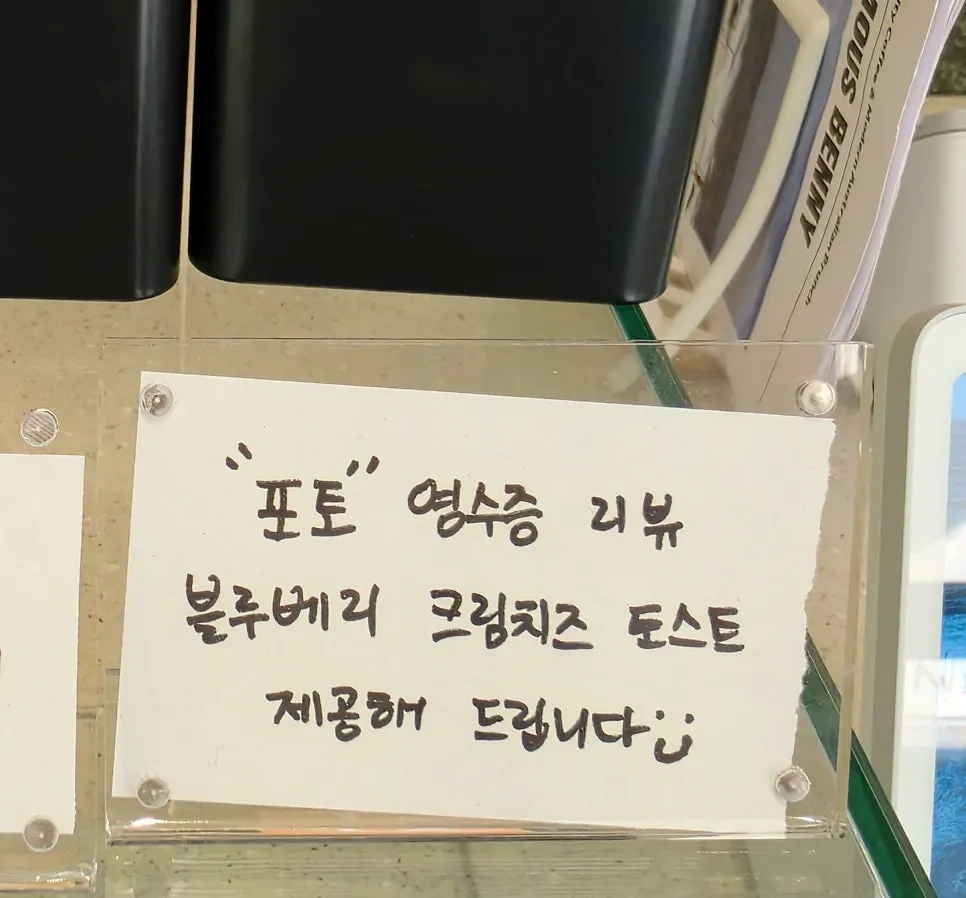 "포토" 영수증 리뷰
블루베리 크림치즈 토스트
제공해 드립니다:)
MOUS BENNY
ry Coffee & Modern Australian Brunch